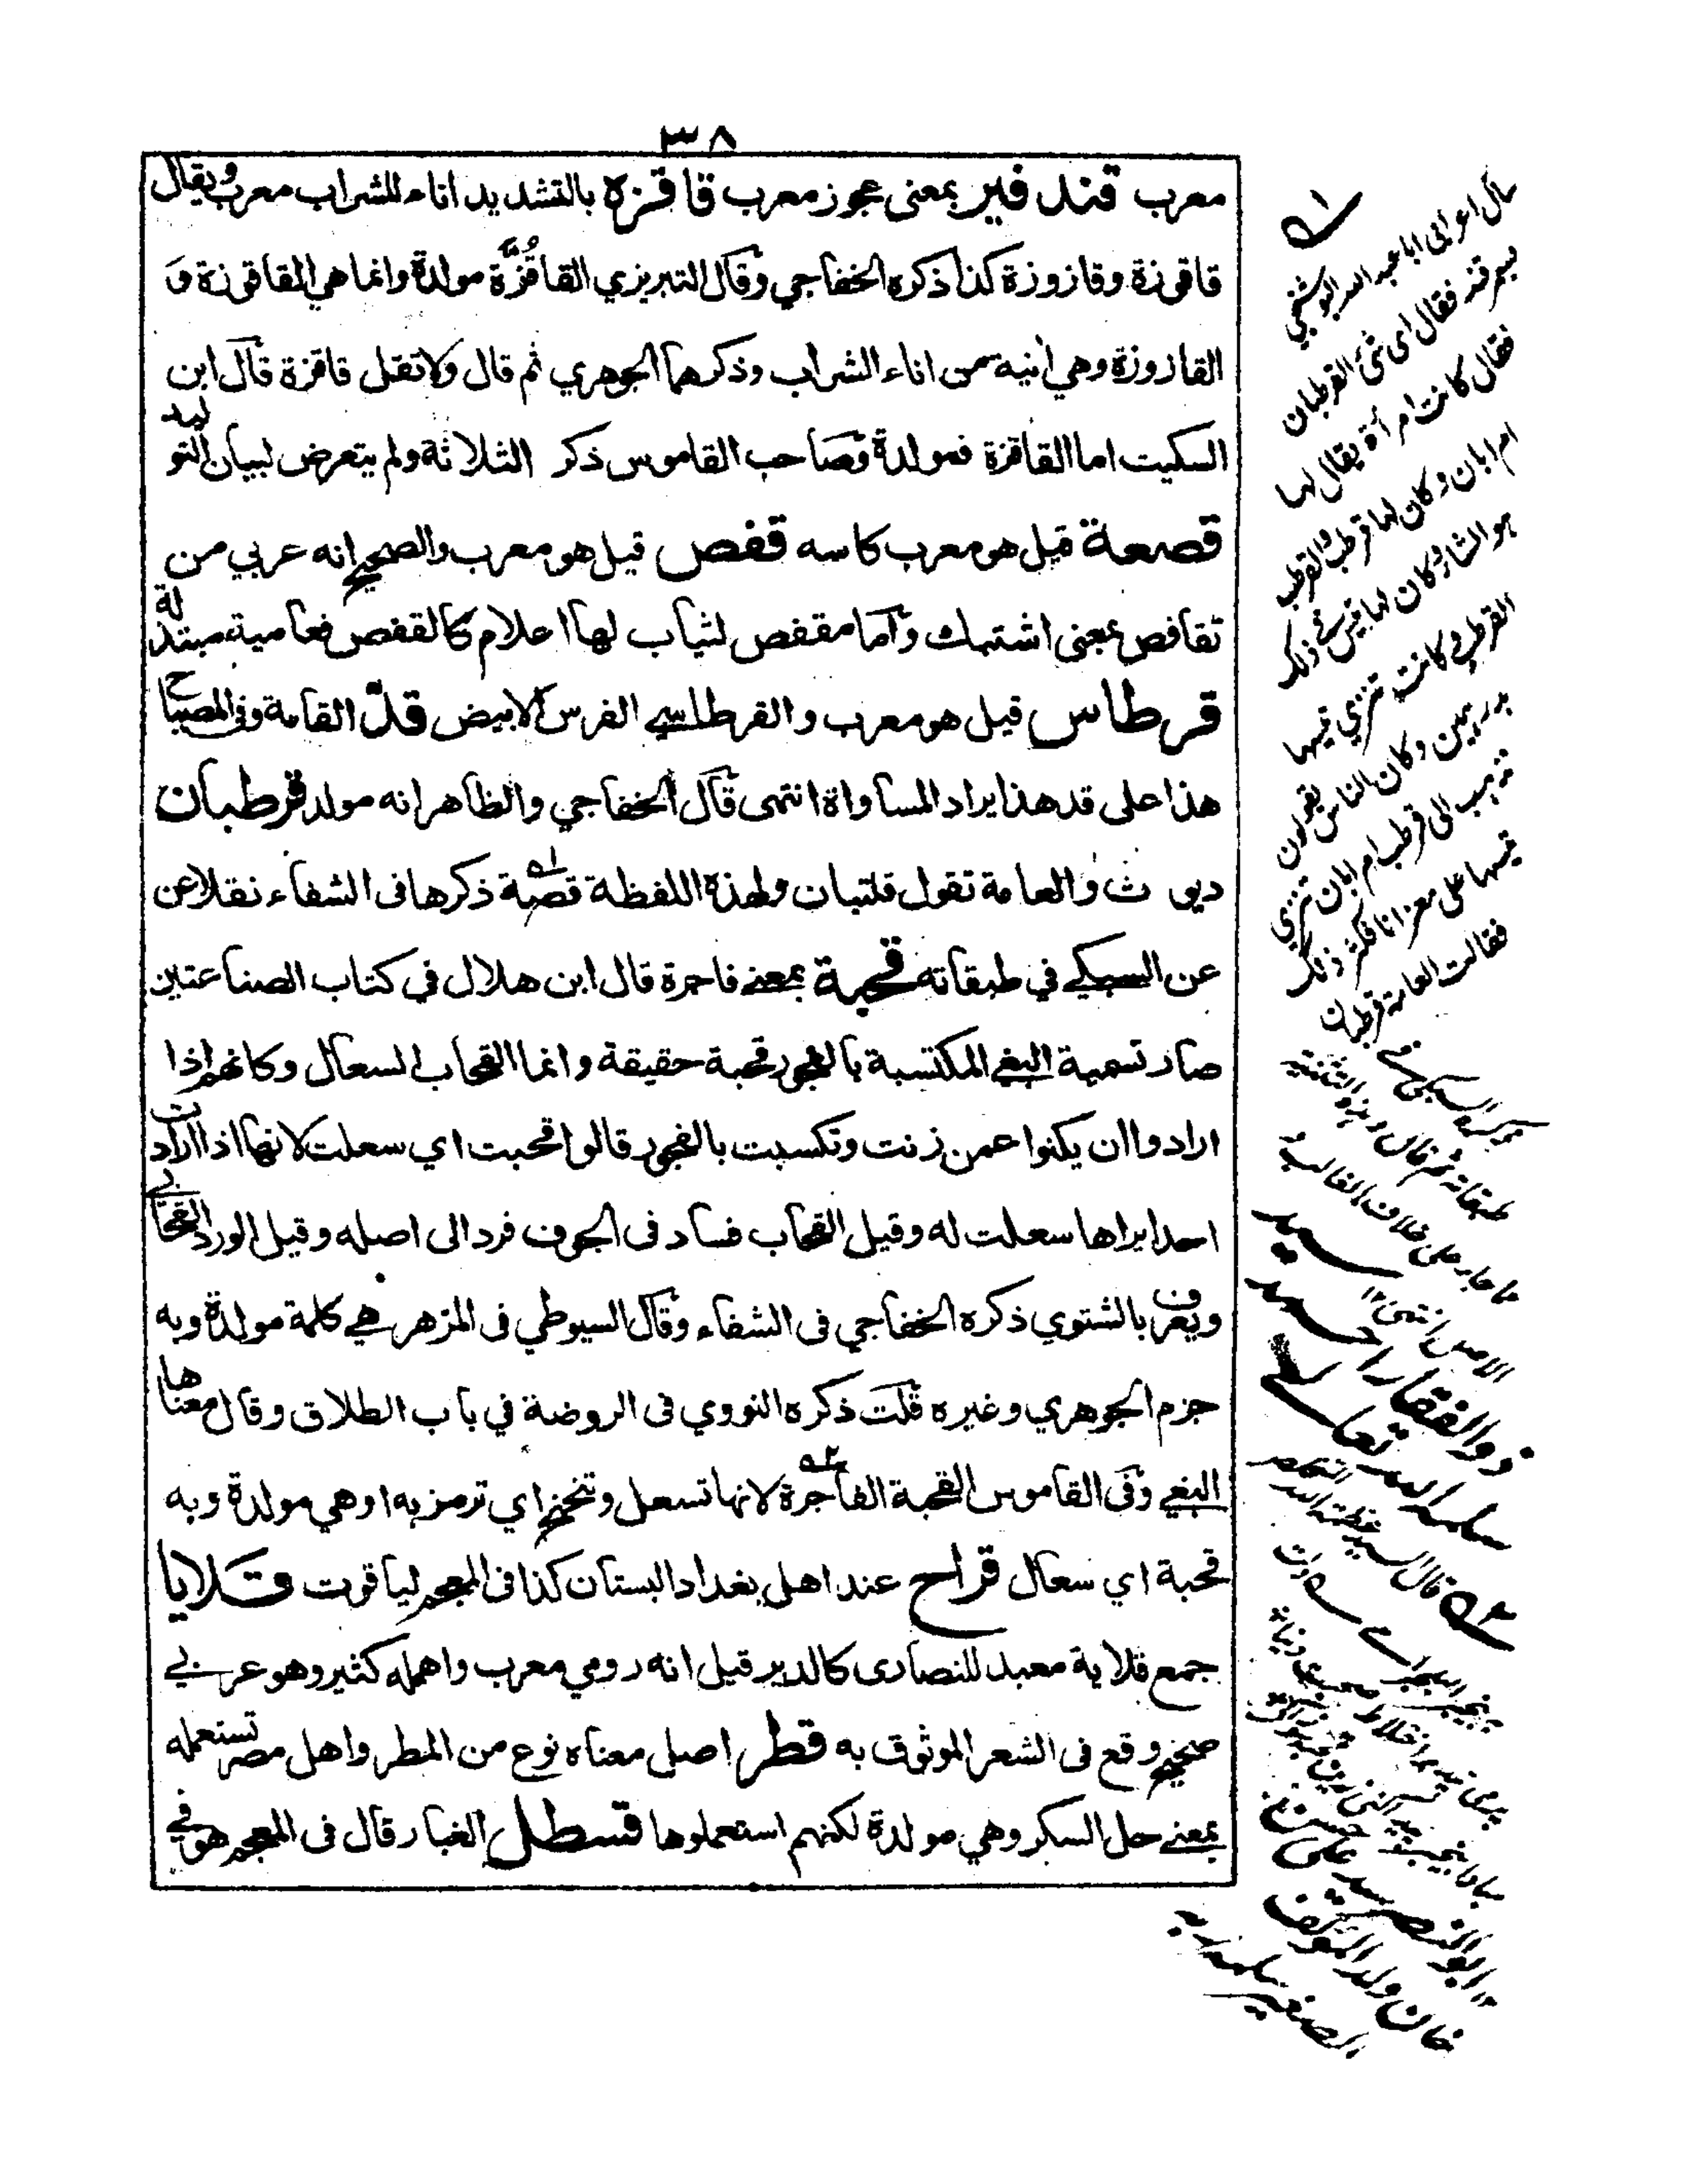 ٣٨
معرب قند فير بمعنى عجوز معرب قاقزه بالتشديد اناء للشراب معرب ويقال
قاقوزة وقازوزة كذا ذكره الخفاجي وقال التبريزي القاقُزَّة مولدة وانما هي القاقوزة و
القازوزة وهي آنية من اناء الشراب وذكرهما الجوهري ثم قال ولا تقل قاقزة قال ابن
السكيت اما القاقزة فمولدة وصاحب القاموس ذكر الثلاثة ولم يتعرض لبيان التوليد
قصعة قيل هو معرب كاسه قفص قيل هو معرب والصحيح انه عربي من
تقافص بمعنى اشتبك وأما مقفص لثياب لها اعلام كالقفص فعامية مبتذلة
قرطاس قيل هو معرب والقرطاسي الفرس الابيض قدّ القامة وفي المصباح
هذا على قد هذا يراد المساواة انتهى قال الخفاجي والظاهر انه مولد قرطبان
ديوث والعامة تقول قلتبان ولهذه اللفظة قصة ذكرها فى الشفاء نقلا عن
عن السبكي في طبقاته قحبة بمعنى فاجرة قال ابن هلال في كتاب الصناعتين
صار تسمية البغي المكتسبة بالفجور قحبة حقيقة وانما القحاب السعال وكانهم اذا
ارادوا ان يكنوا عمن زنت وتكسبت بالفجور قالوا قحبت اي سعلت لانها اذا ارادت
احدا يراها سعلت له وقيل القحاب فساد فى الجوف فرد الى اصله وقيل الورد القحابي
ويعرف بالشتوي ذكره الخفاجي فى الشفاء وقال السيوطي فى المزهر هي كلمة مولدة وبه
جزم الجوهري وغيره قلت ذكره النووي فى الروضة في باب الطلاق وقال معناها
البغي وفى القاموس القحبة الفاجرة لانها تسعل وتنحنح اي ترمز به او هي مولدة وبه
قحبة اي سعال قراح عند اهل بغداد البستان كذا فى المعجم لياقوت قلايا
جمع قلاية معبد للنصارى كالدير قيل انه رومي معرب واهمله كثير وهو عربي
صحيح وقع فى الشعر الموثوق به قطر اصل معناه نوع من المطر واهل مصر تستعمله
بمعنى حل السكر وهي مولدة لكنهم استعملوها قسطل الغبار قال فى المعجم هو في
سأل اعرابى ابا عبد الله البوشنجي
بسمرقند فقال اى شئ القرطبان
فقال كانت امرأة يقال لها
ام ابان وكان لها قرطب والقرطب
هو
القرطب وكانت تنزي تيسها
بدرهمين وكان الناس يقولون
نذهب الى قرطب ام ابان تنزي
تيسها على معزانا فكثر ذلك
فقالت العامة قرطبان
ذكره السبكي في
طبقاته ثم قال وهذه التثنية
مما جاء على خلاف الغالب
الاصل انتهى ١٢ سيد
ذو الفقار احمد
سلمه الله تعالى
ابو النصر سيد علي حسن
خان ولد المؤلف
الصغير سلمه ربه